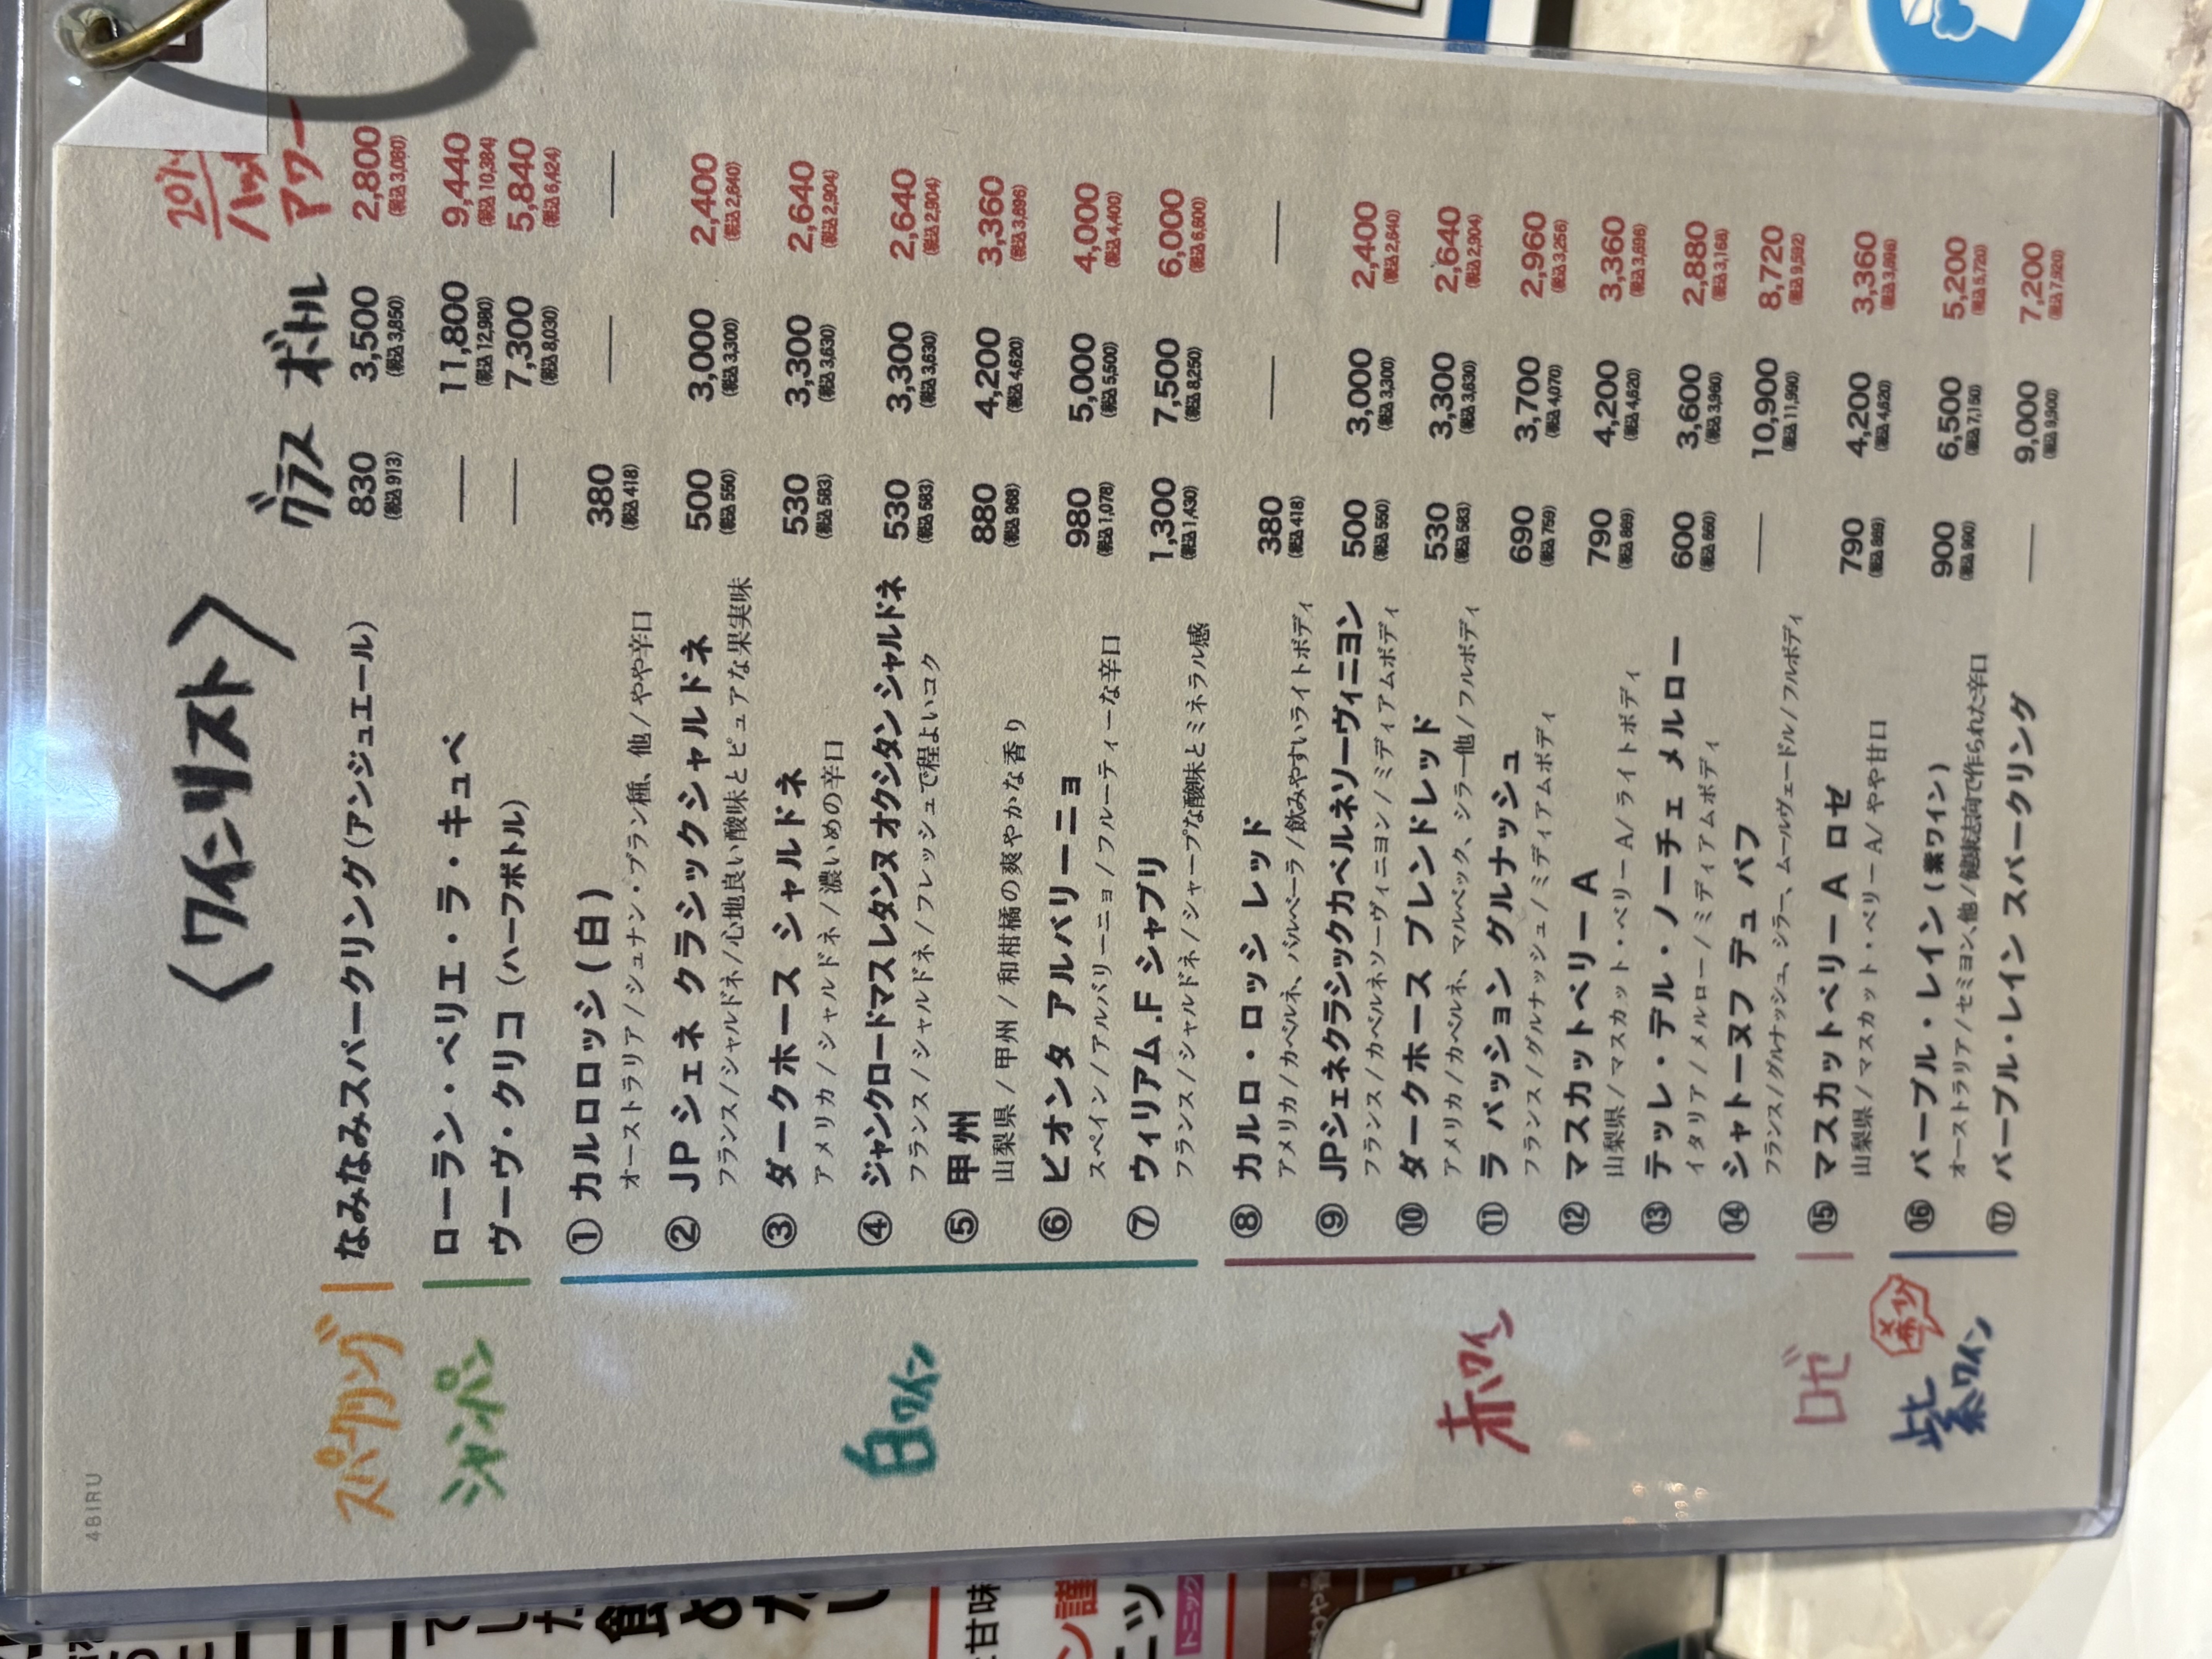 4BIRU
〈ワインリスト〉
グラス ボトル 20% ハッピーアワー
スパークリング
なみなみスパークリング(アンジュエール) 830 3,500 2,800
(税込 913) (税込 3,850) (税込 3,080)
シャンパン
ローラン・ペリエ・ラ・キュベ — 11,800 9,440
(税込 12,980) (税込 10,384)
ヴーヴ・クリコ (ハーフボトル) — 7,300 5,840
(税込 8,030) (税込 6,424)
白ワイン
① カルロロッシ (白) 380 — —
オーストラリア/シュナン・ブラン種、他/やや辛口 (税込 418)
② JP シェネ クラシックシャルドネ 500 3,000 2,400
フランス/シャルドネ/心地良い酸味とピュアな果実味 (税込 550) (税込 3,300) (税込 2,640)
③ ダークホース シャルドネ 530 3,300 2,640
アメリカ/シャルドネ/濃いめの辛口 (税込 583) (税込 3,630) (税込 2,904)
④ ジャンクロードマス レタンヌ オクシタン シャルドネ 530 3,300 2,640
フランス/シャルドネ/フレッシュで程よいコク (税込 583) (税込 3,630) (税込 2,904)
⑤ 甲州 880 4,200 3,360
山梨県/甲州/和柑橘の爽やかな香り (税込 968) (税込 4,620) (税込 3,696)
⑥ ビオンタ アルバリーニョ 980 5,000 4,000
スペイン/アルバリーニョ/フルーティーな辛口 (税込 1,078) (税込 5,500) (税込 4,400)
⑦ ウィリアム.F シャブリ 1,300 7,500 6,000
フランス/シャルドネ/シャープな酸味とミネラル感 (税込 1,430) (税込 8,250) (税込 6,600)
赤ワイン
⑧ カルロ・ロッシ レッド 380 — —
アメリカ/カベルネ、バルベーラ/飲みやすいライトボディ (税込 418)
⑨ JPシェネクラシックカベルネソーヴィニヨン 500 3,000 2,400
フランス/カベルネソーヴィニヨン/ミディアムボディ (税込 550) (税込 3,300) (税込 2,640)
⑩ ダークホース ブレンドレッド 530 3,300 2,640
アメリカ/カベルネ、マルベック、シラー他/フルボディ (税込 583) (税込 3,630) (税込 2,904)
⑪ ラ パッション グルナッシュ 690 3,700 2,960
フランス/グルナッシュ/ミディアムボディ (税込 759) (税込 4,070) (税込 3,256)
⑫ マスカットベリー A 790 4,200 3,360
山梨県/マスカット・ベリーA/ライトボディ (税込 869) (税込 4,620) (税込 3,696)
⑬ テッレ・デル・ノーチェ メルロー 600 3,600 2,880
イタリア/メルロー/ミディアムボディ (税込 660) (税込 3,960) (税込 3,168)
⑭ シャトーヌフ デュ パフ — 10,900 8,720
フランス/グルナッシュ、シラー、ムールヴェードル/フルボディ (税込 11,990) (税込 9,592)
ロゼ
⑮ マスカットベリー A ロゼ 790 4,200 3,360
山梨県/マスカット・ベリーA/やや甘口 (税込 869) (税込 4,620) (税込 3,696)
紫ワイン 希少
⑯ パープル・レイン (紫ワイン) 900 6,500 5,200
オーストラリア/セミヨン、他/健康志向で作られた辛口 (税込 990) (税込 7,150) (税込 5,720)
⑰ パープル・レイン スパークリング — 9,000 7,200
(税込 9,900) (税込 7,920)
甘味
トニック